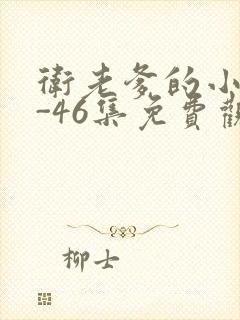 衛老爹的小
-46集免費觀
柳士